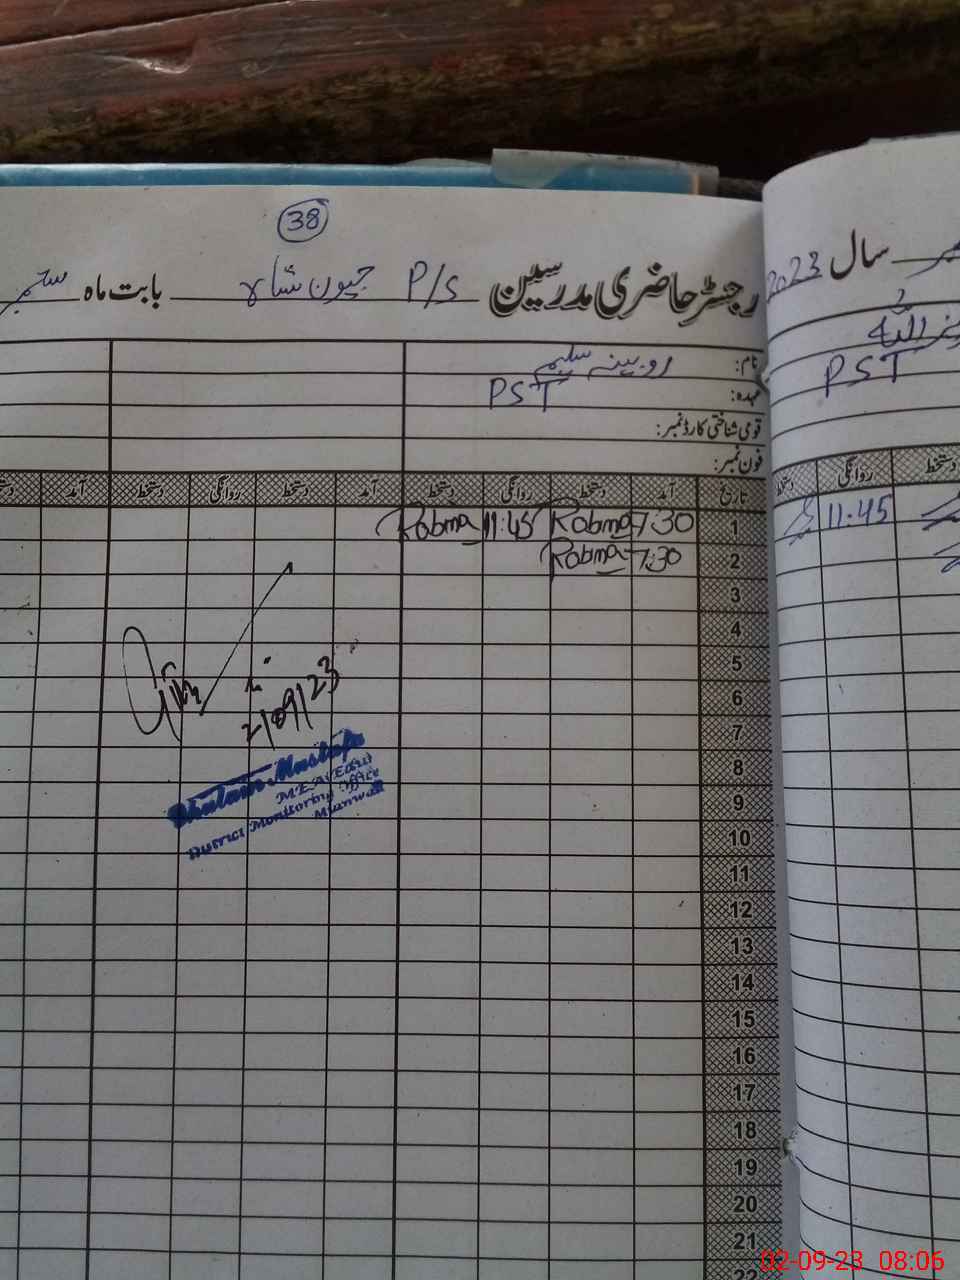 38
رجسٹر حاضری مدرسین P/S جیون شاہ بابت ماہ ستمبر
سال 2023
نام: روبینہ سلیم
عہدہ: PST
قومی شناختی کارڈ نمبر:
فون نمبر:
PST
تاریخ آمد دستخط روانگی دستخط آمد دستخط روانگی دستخط آمد
دستخط روانگی دستخط
1 7:30 Robina 11:45 Robina
11:45
2 7:30 Robina
3
4
5
6
7
8
9
10
11
12
13
14
15
16
17
18
19
20
21
22
2/09/23
Ghulam Mustafa
M.E.A (Edu)
District Monitoring Office
Mianwali
02-09-23 08:06